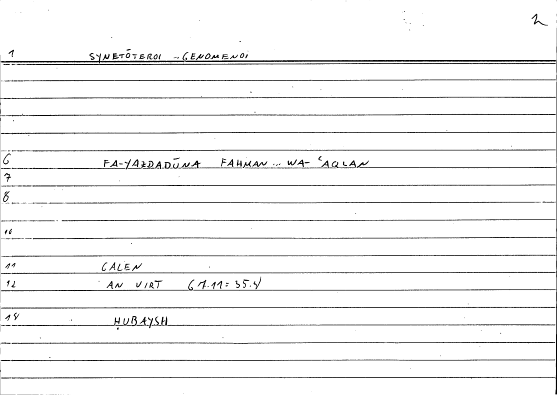 2
1 SYNETŌTEROI - GENOMENOI
6 FA-YAZDADŪNA FAHMAN... WA- ʿAQLAN
7
8
10
11 GALEN
12 AN VIRT 67.11=35.4
14 ḤUBAYSH